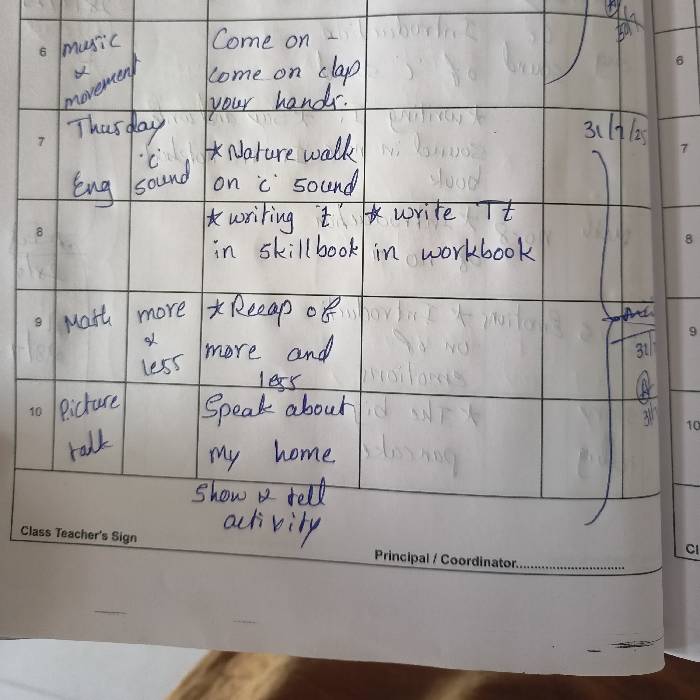 6 music Come on
& come on clap
movement your hands.
7 Thursday 31/7/25
'c' * Nature walk
Eng sound on 'c' sound
8 * writing 't' * write Tt
in skillbook in workbook
9 Math more * Recap of
& more and
less less
10 Picture Speak about
talk my home
Show & tell
activity
Class Teacher's Sign
Principal / Coordinator
6
7
8
9
10